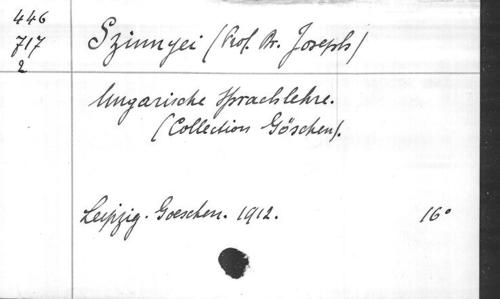 446
717
2
Szinnyei (Prof. Dr. Joseph)
Ungarische Sprachlehre.
(Collection Göschen).
Leipzig. Goeschen. 1912. 16°